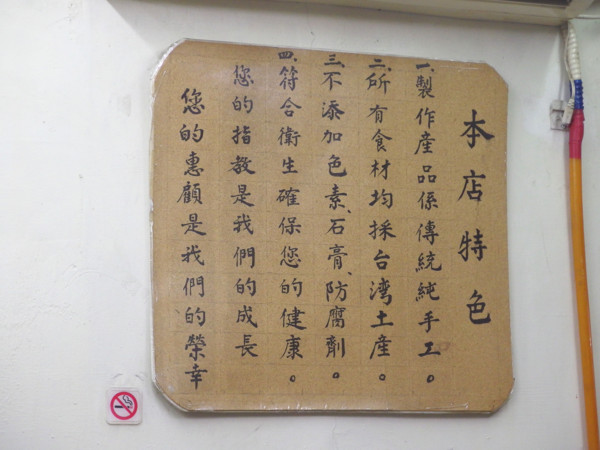 本店特色
一、製作産品係傳統純手工。
二、所有食材均採台湾土産。
三、不添加色素、石膏、防腐劑。
四、符合衛生確保您的健康。
您的指教是我們的成長
您的惠顧是我們的榮幸